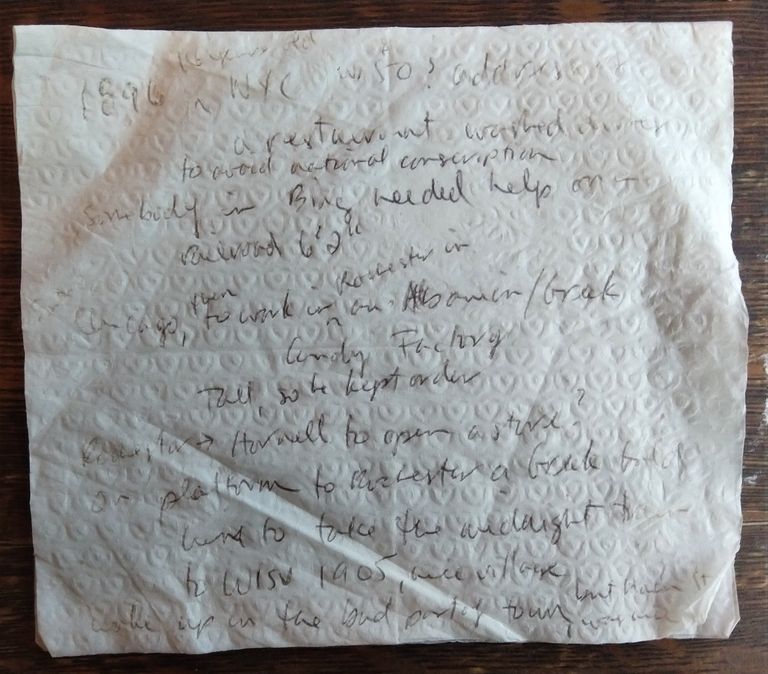 16 years old
1896 in NYC w/ $10? address
a restaurant. washed dishes
to avoid national conscription
Somebody in Bing needed help on
railroad 6'2"
Chicago, then to work in Rochester in an /Greek
Candy Factory
Tall, so he kept order
Rochester → Hornell to open a store?
on platform to Rochester a Greek told
here to take the midnight train
to 1905, nice village
woke up in the bad part of town, but Main St
was nice